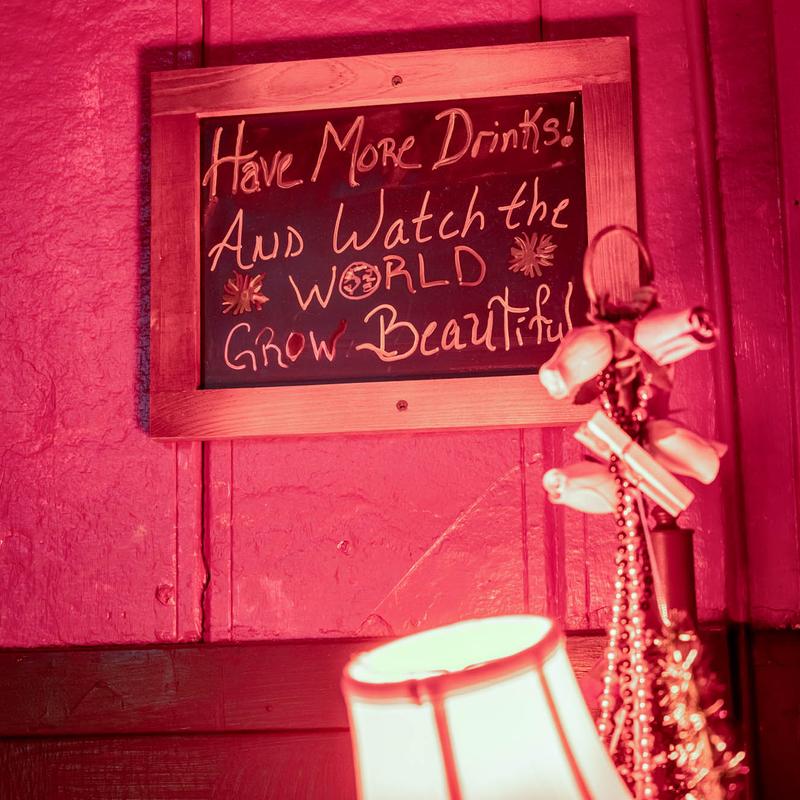 Have More Drinks!
And Watch the
World
Grow Beautiful